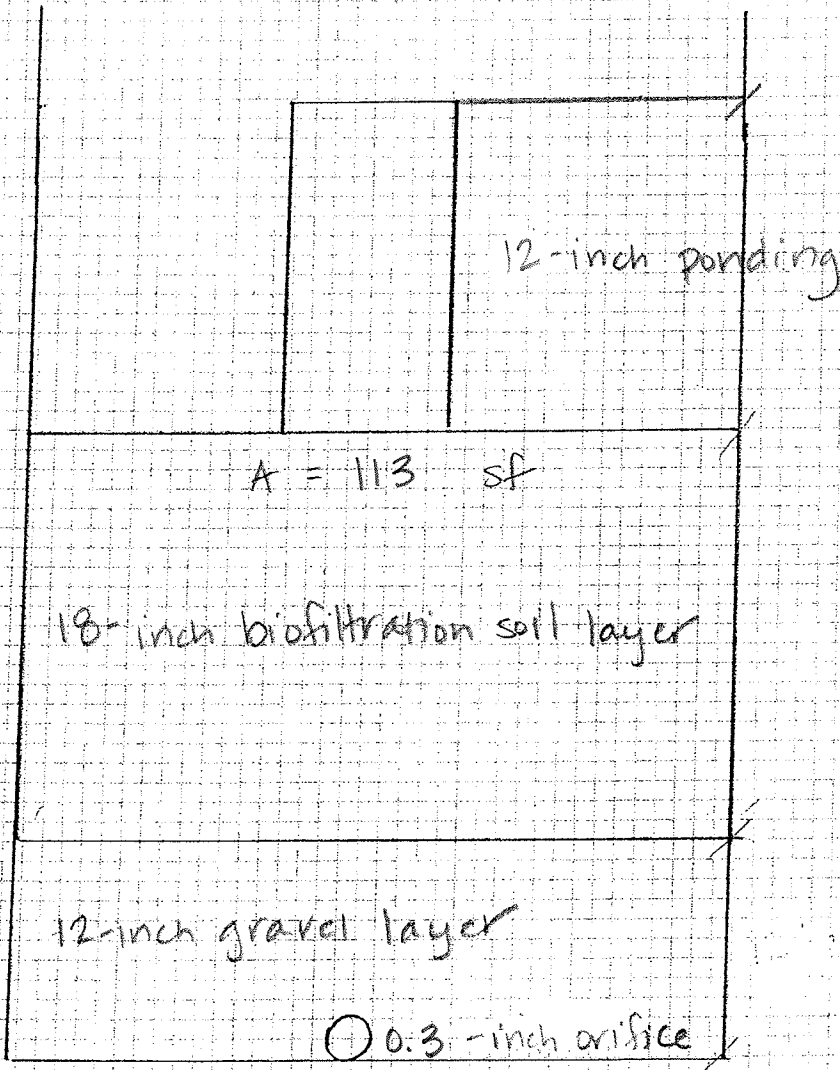 12-inch ponding
A = 113 sf
18-inch biofiltration soil layer
12-inch gravel layer
0.3-inch orifice